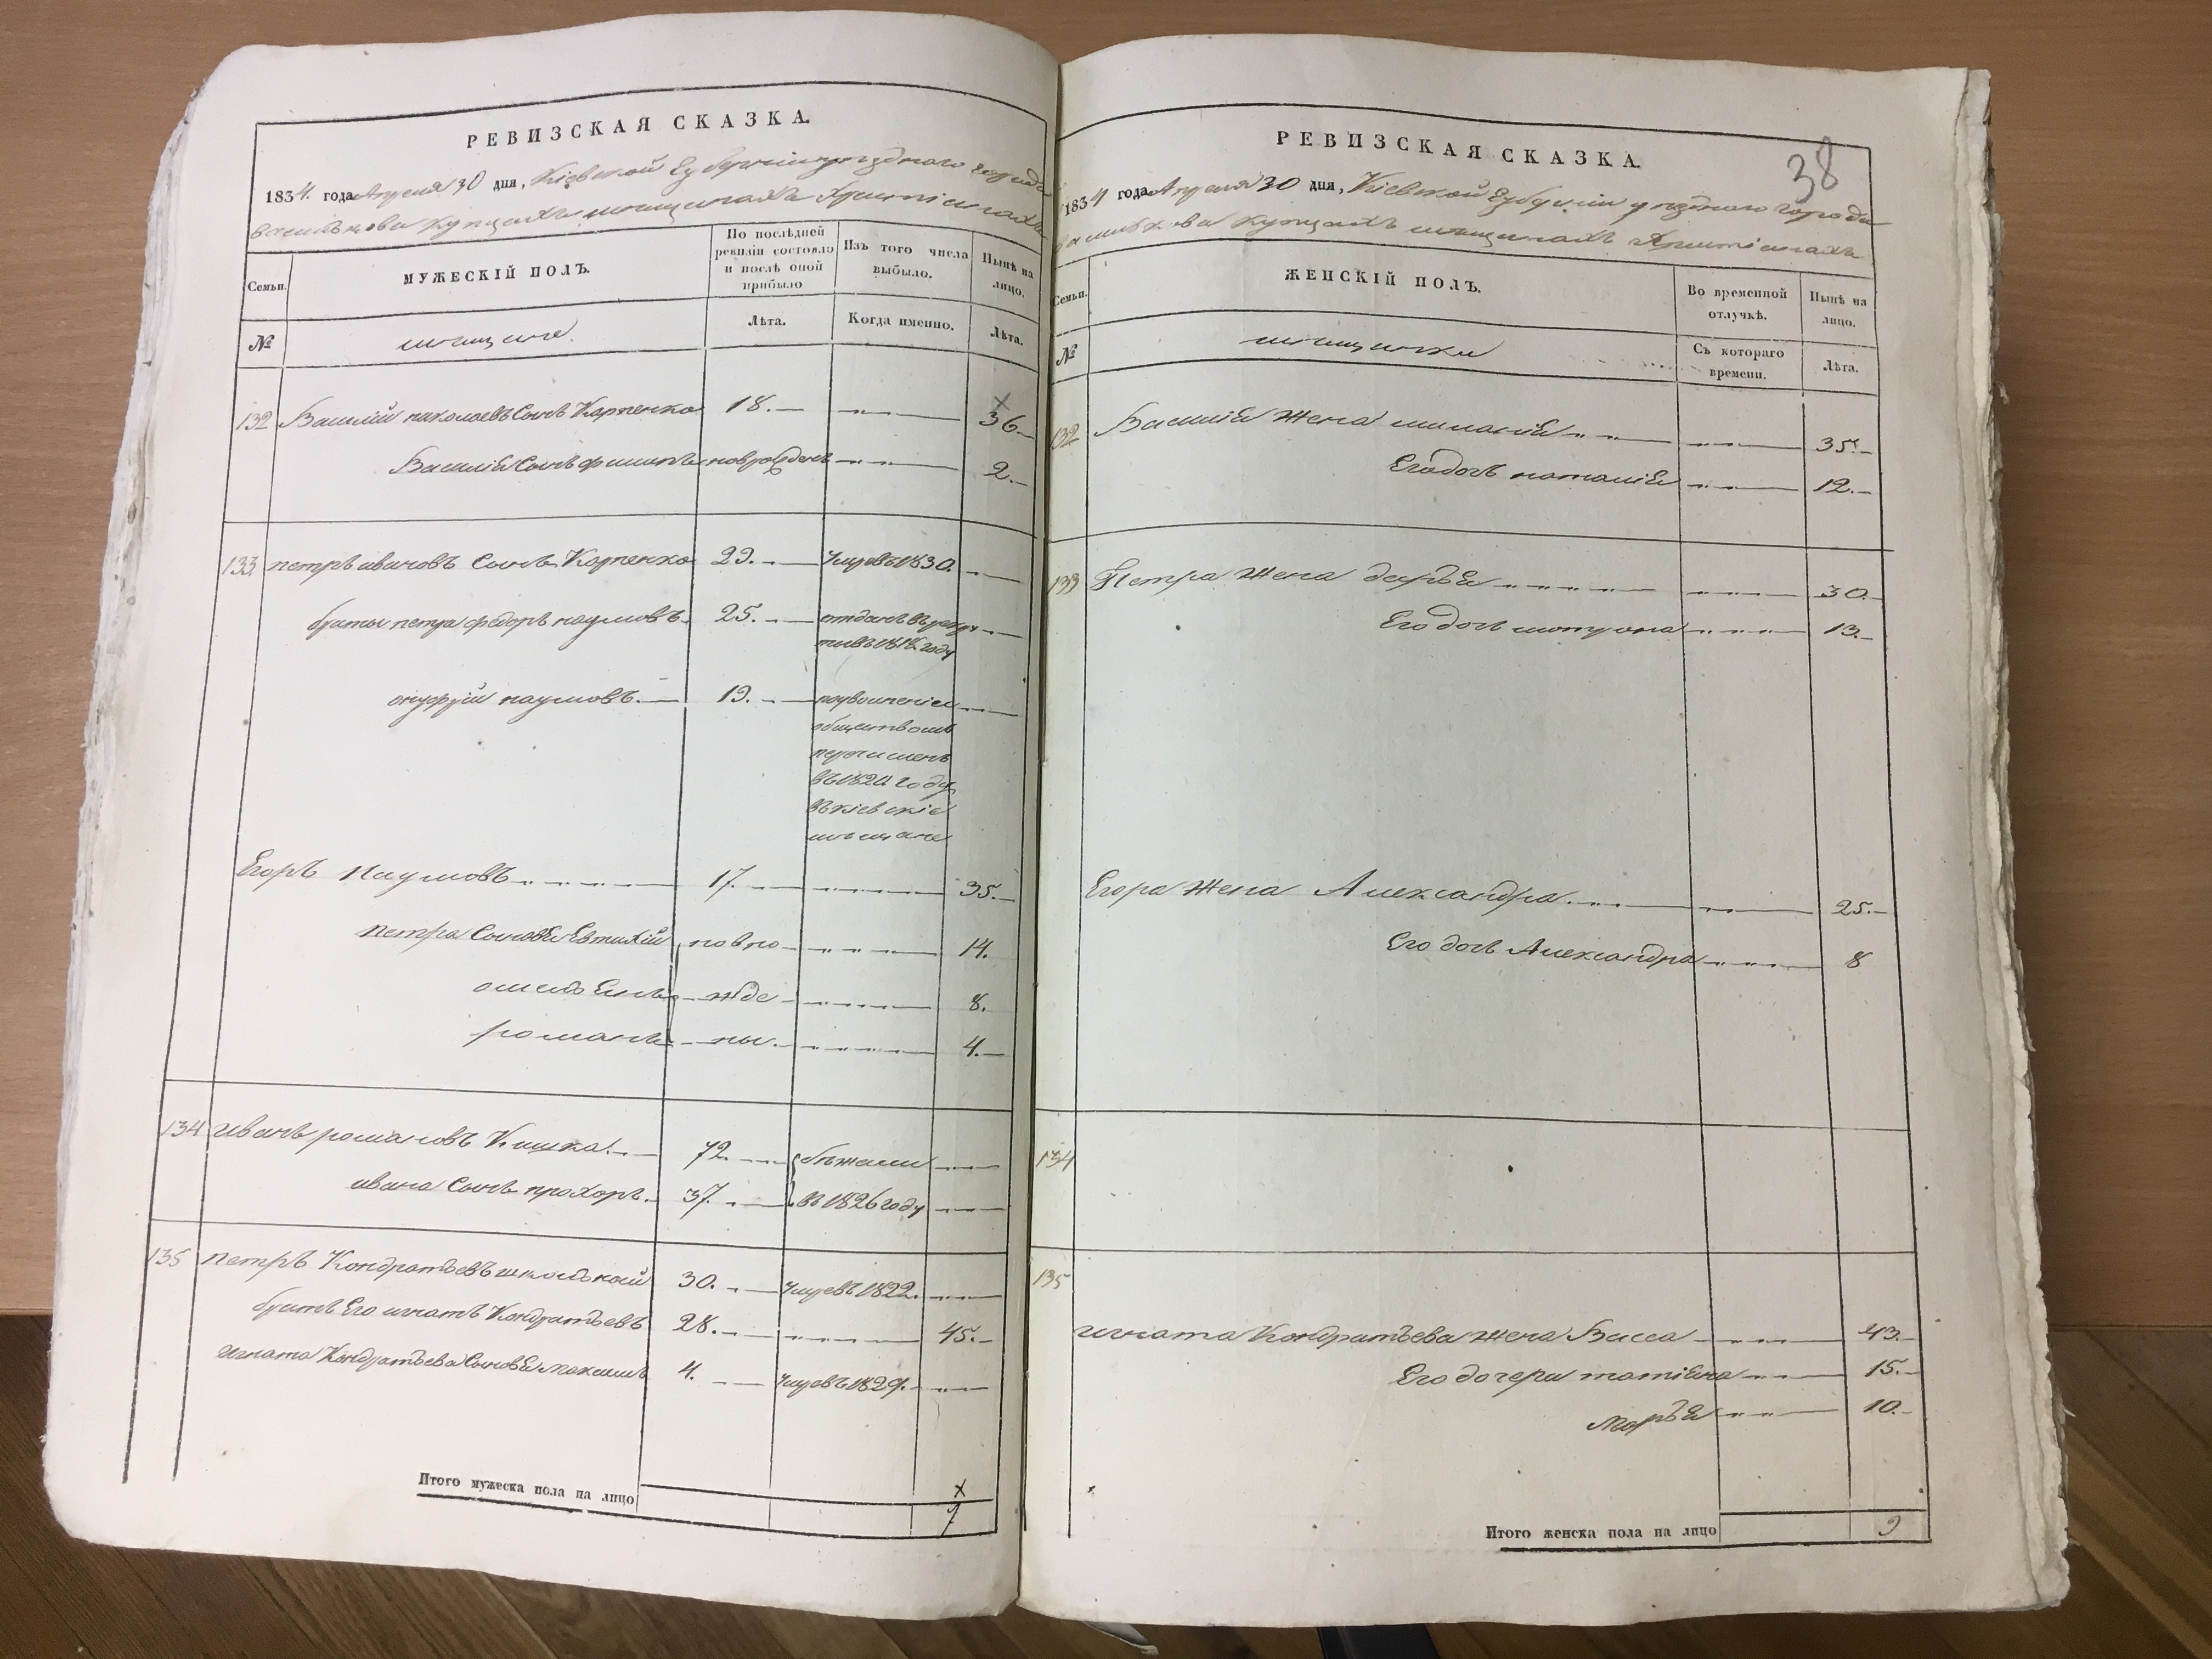 РЕВИЗСКАЯ СКАЗКА.
1834. года Апреля 30 дня, Кіевской Губерніи уѣзднаго города
василькова купцахъ мещинахъ Христіянахъ
Семьи.
МУЖЕСКІЙ ПОЛЪ.
По послѣдней ревизіи состояло и послѣ оной прибыло
Изъ того числа выбыло.
Нынѣ на лицо.
№
мещане.
Лѣта.
Когда именно.
Лѣта.
132 Василий николаевъ Сынъ Карпенко 18. 36
Василія Сынъ филипъ новорожденъ 2.
133 петръ ивановъ Сынъ Карпенко 29. Умревъ 1830.
браты петра федоръ наумовъ 25. отданъ въ рекру
ты въ 18 году
онуфрій наумовъ. 19.
обществомъ
перечисленъ
въ 182 году
въ кіевскіе
мещане
Егоръ Наумовъ 17. 35.
петра Сыновья Евтихій новро 14.
жде 8.
романъ ны. 4.
134 иванъ романовъ Кишка. 72. бѣжали
ивана Сынъ прохоръ. 37. въ 1826 году
135 петръ Кондратьевъ школьной 30. Умревъ 1822.
братъ Его игнатъ Кондратьевъ 28. 45.
игната Кондратьева Сыновья максимъ 4. Умревъ 1829.
Итого мужеска пола на лицо 7
38
РЕВИЗСКАЯ СКАЗКА.
1834 года Апреля 30 дня, Кіевской Губерніи уѣзднаго города
василькова купцахъ мещинахъ Христіянахъ
Семьи.
ЖЕНСКІЙ ПОЛЪ.
Во временной отлучкѣ.
Нынѣ на лицо.
№
мещанки
Съ котораго времени.
Лѣта.
132 Василія Жена миланія 35.
Его дочь наталія 12.
133 Петра Жена дарья 30.
Его дочь мотрона 13.
Егора Жена Александра 25.
Его дочь Александра 8
134
135
игната Кондратьева жена Васса 43.
Его дочери татіяна 15.
марья 10.
Итого женска пола на лицо 9